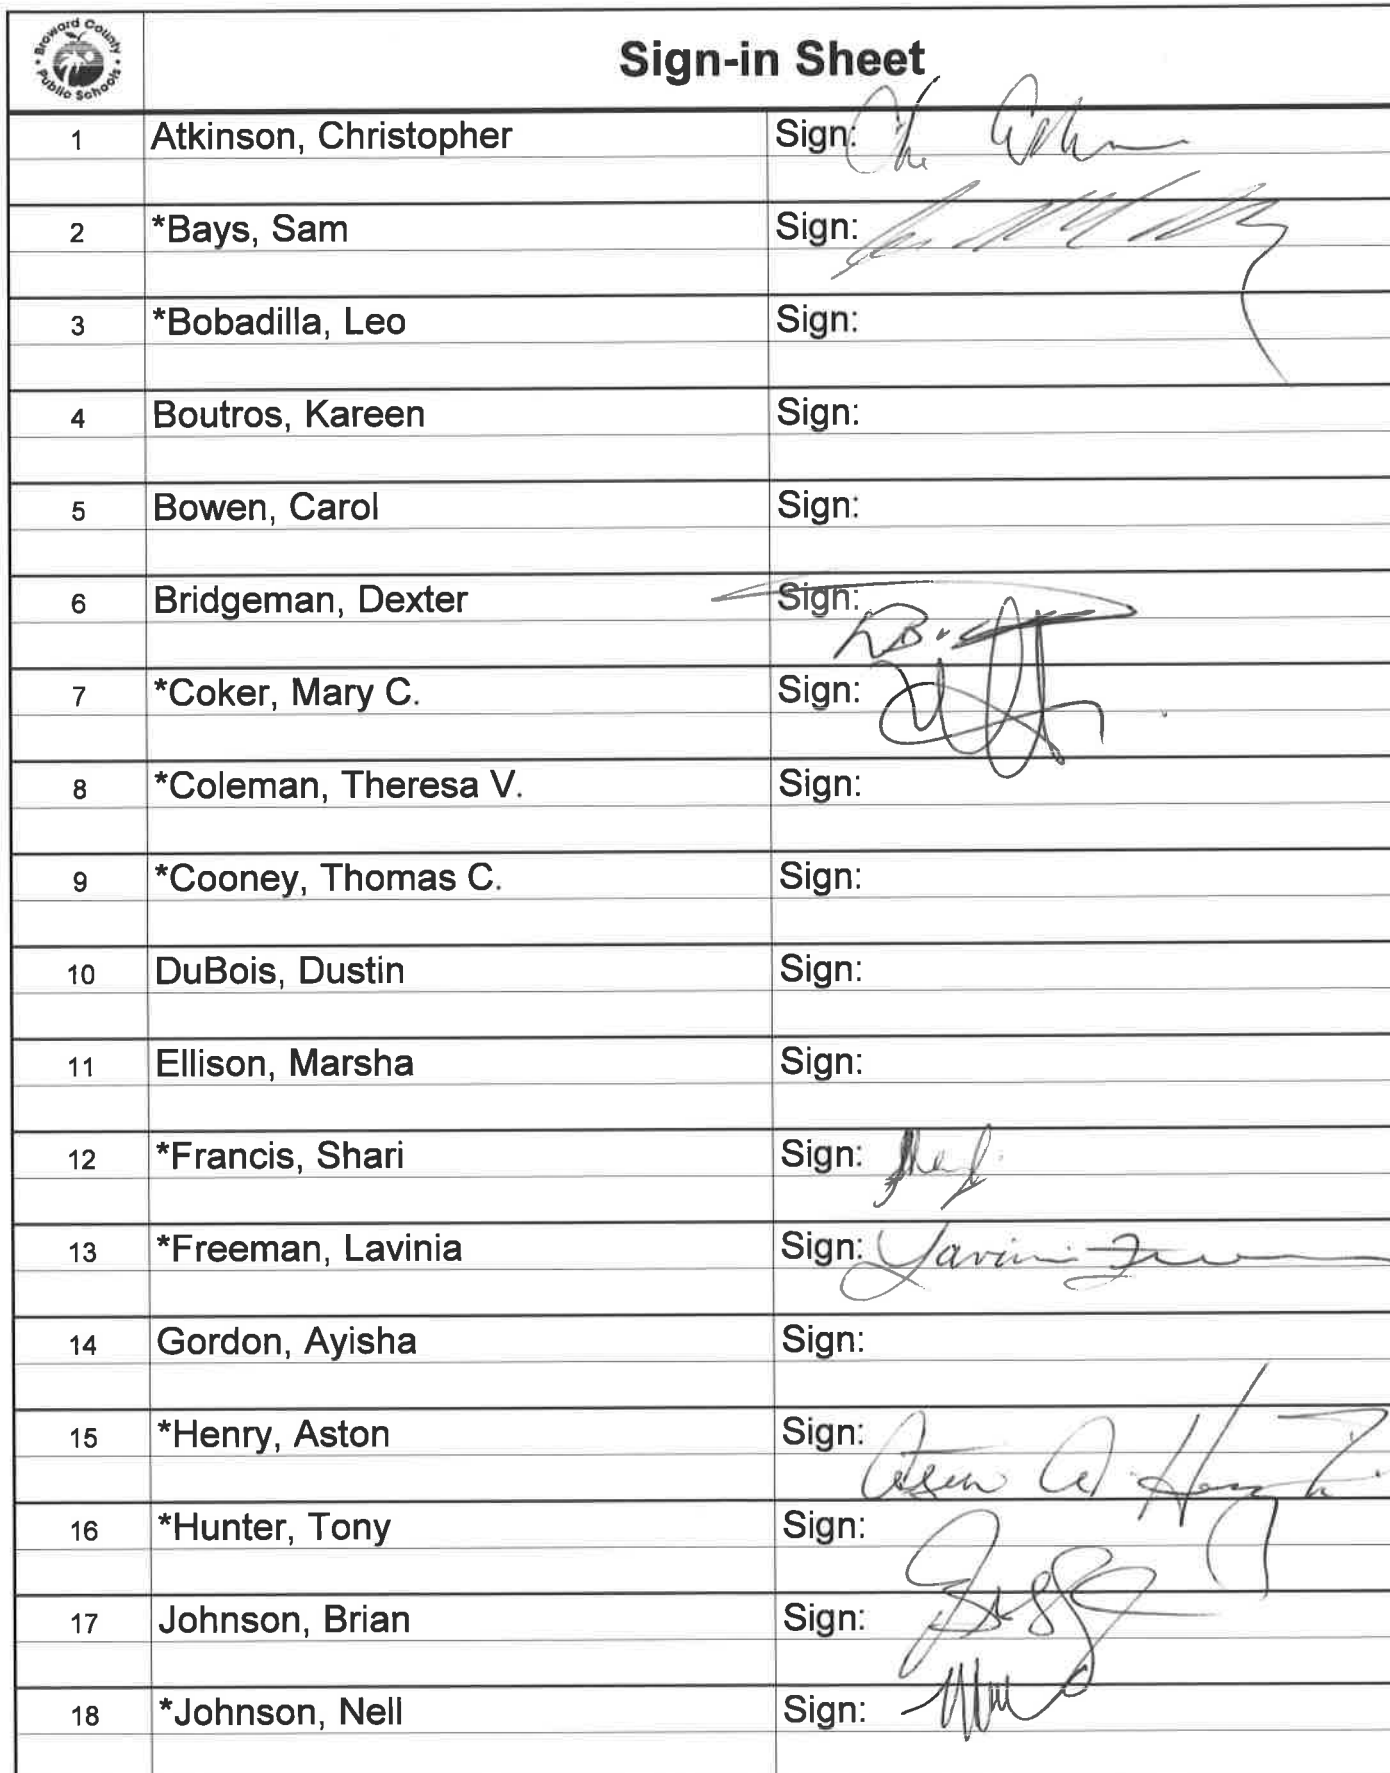 Broward County
Public Schools
Sign-in Sheet
1 Atkinson, Christopher Sign:
2 *Bays, Sam Sign:
3 *Bobadilla, Leo Sign:
4 Boutros, Kareen Sign:
5 Bowen, Carol Sign:
6 Bridgeman, Dexter Sign:
7 *Coker, Mary C. Sign:
8 *Coleman, Theresa V. Sign:
9 *Cooney, Thomas C. Sign:
10 DuBois, Dustin Sign:
11 Ellison, Marsha Sign:
12 *Francis, Shari Sign:
13 *Freeman, Lavinia Sign:
14 Gordon, Ayisha Sign:
15 *Henry, Aston Sign:
16 *Hunter, Tony Sign:
17 Johnson, Brian Sign:
18 *Johnson, Nell Sign: